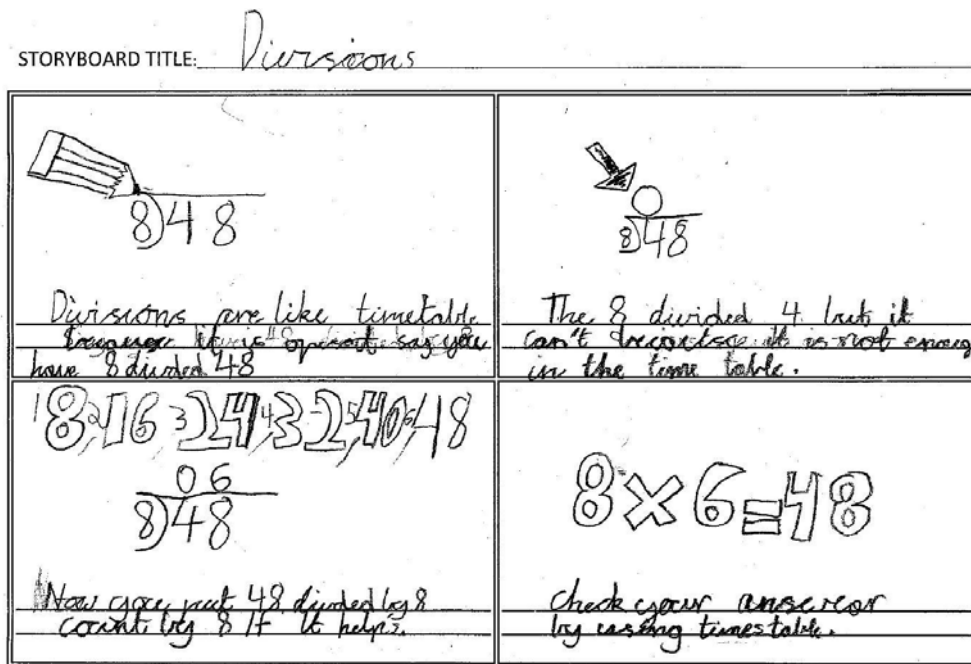 STORYBOARD TITLE: Diversions
8)48
Divisions are like timetable
it is opisot say you
have 8 divided 48
0
8)48
The 8 divided 4 but it
can't it is not enoug
in the time table.
1 8, 2 16, 3 24, 4 32, 5 40, 6 48
06
8)48
Now you put 48 divided by 8
count by 8 If it helps.
8×6=48
check your anserear
by using times table.